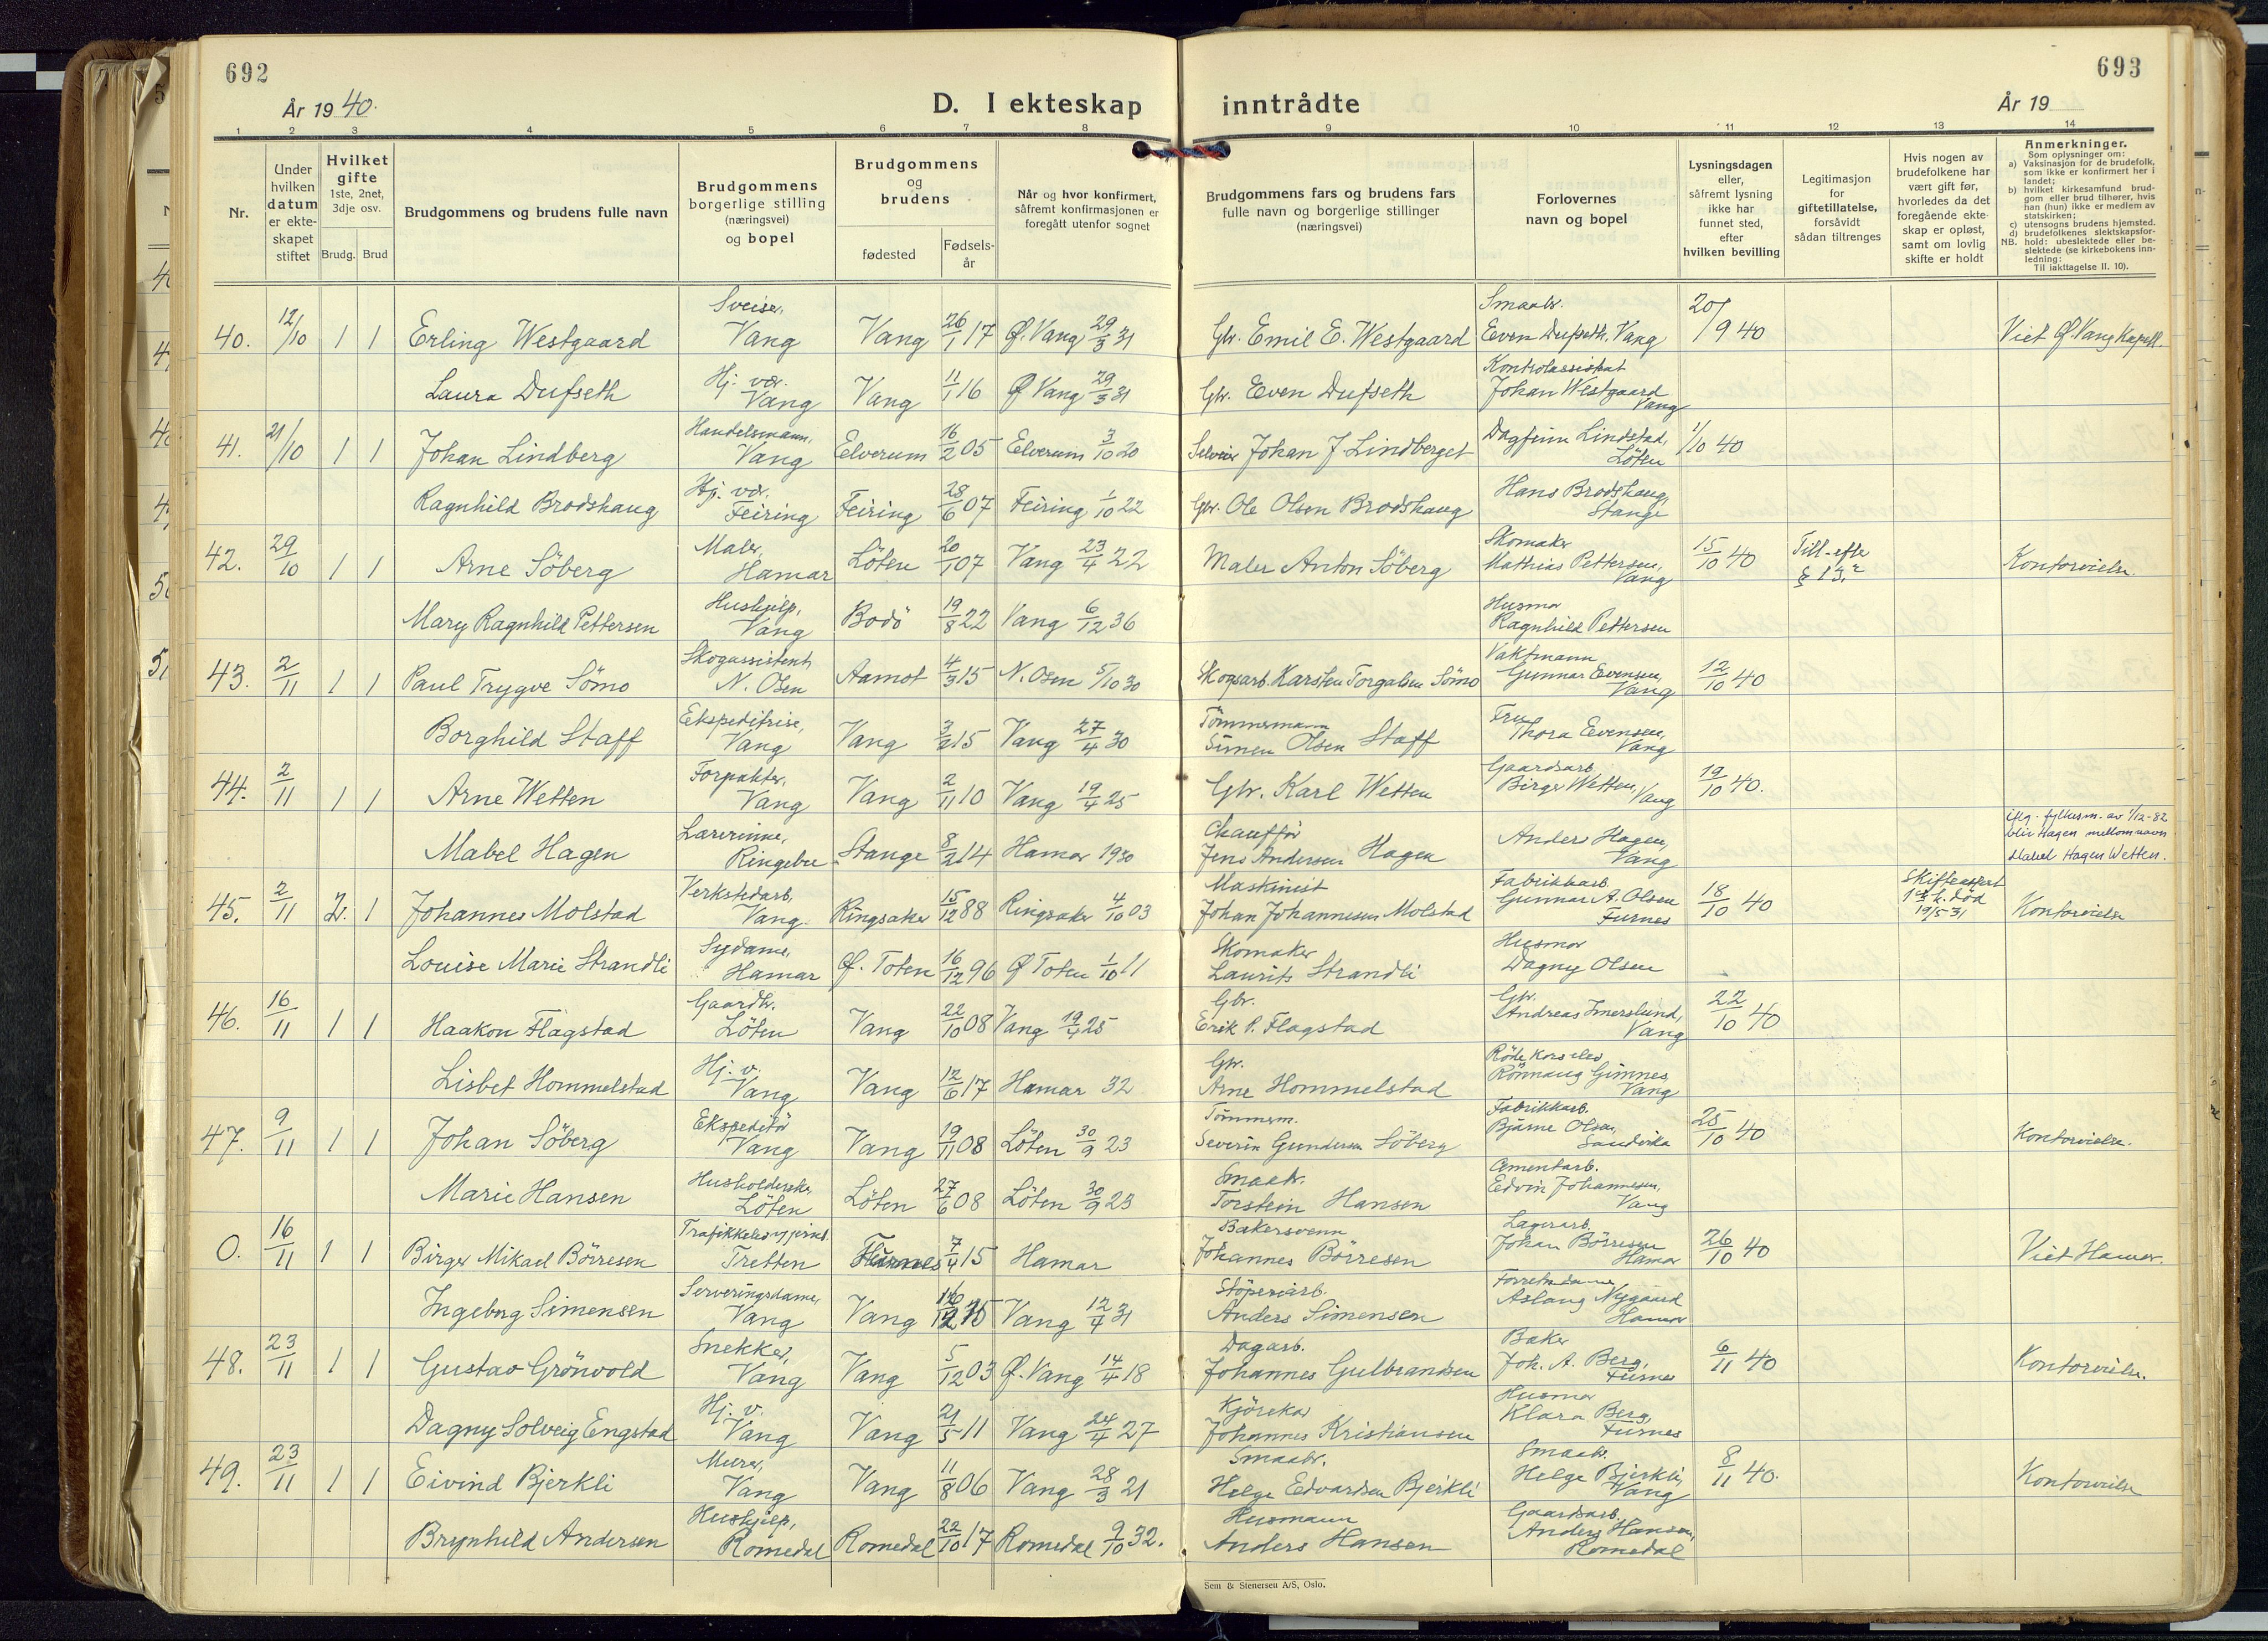 692
693
År 1940.
D. I ekteskap inntrådte
År 19
1 2 3 4 5 6 7 8 9 10 11 12 13 14
Nr.
Under hvilken datum er ekteskapet stiftet
Hvilket gifte 1ste, 2net, 3dje osv.
Brudg. Brud
Brudgommens og brudens fulle navn
Brudgommens borgerlige stilling (næringsvei) og bopel
Brudgommens og brudens
fødested
Fødsels-år
Når og hvor konfirmert, såfremt konfirmasjonen er foregått utenfor sognet
Brudgommens fars og brudens fars fulle navn og borgerlige stillinger (næringsvei)
Forlovernes navn og bopel
Lysningsdagen eller, såfremt lysning ikke har funnet sted, efter hvilken bevilling
Legitimasjon for giftetillatelse, forsåvidt sådan tiltrenges
Hvis nogen av brudefolkene har vært gift før, hvorledes da det foregående ekteskap er opløst, samt om lovlig skifte er holdt
Anmerkninger.
Som oplysninger om:
a) Vaksinasjon for de brudefolk, som ikke er konfirmert her i landet;
b) hvilket kirkesamfund brudgom eller brud tilhører, hvis han (hun) ikke er medlem av statskirken;
c) utensogns brudens hjemsted.
d) brudefolkenes slektskapsforhold: ubeslektede eller beslektede (se kirkebokens innledning:
NB. Til iakttagelse II. 10).
40. 12/10 1 1 Erling Westgaard Sveiser, Vang Vang 26/1 17 Ø. Vang 29/3 31 Gbr. Emil E. Westgaard Smaabr. Even Dufseth, Vang 20/9 40 Viet Ø. Vang Kapell.
Laura Dufseth Hj. vær. Vang Vang 11/1 16 Ø Vang 29/3 31 Gbr. Even Dufseth Kontrolassistent Johan Westgaard Vang
41. 21/10 1 1 Johan Lindberg Handelsmann, Vang Elverum 16/2 05 Elverum 3/10 20 Selveier Johan J. Lindberget Dagfinn Lindstad, Löten 1/10 40
Ragnhild Brodshaug Hj. vær. Feiring Feiring 28/6 07 Feiring 1/10 22 Gbr. Ole Olsen Brodshaug Hans Brodshaug, Stange
42. 29/10 1 1 Arne Söberg Maler, Hamar Löten 20/1 07 Vang 23/4 22 Maler Anton Söberg Skomaker Mathias Pettersen, Vang 15/10 40 Till. efter § 13,2 Kontorvielse.
Mary Ragnhild Pettersen Hushjelp, Vang Bodö 19/8 22 Vang 6/12 36 Husmor Ragnhild Pettersen
43. 2/11 1 1 Paul Trygve Sömo Skogassistent, N. Osen Aamot 4/3 15 N. Osen 5/10 30 Skogsarb. Karsten Torgalsen Sömo Vaktmann Gunnar Evensen, Vang 12/10 40
Borghild Staff Ekspeditrise, Vang Vang 3/2 15 Vang 27/4 30 Tömmermann Simen Olsen Staff Fru Thora Evensen, Vang
44. 2/11 1 1 Arne Wetten Forpakter, Vang Vang 2/11 10 Vang 19/4 25 Gbr. Karl Wetten Gaardsarb. Birger Wetten, Vang 19/10 40.
Mabel Hagen Lærerinne, Ringebu Stange 8/2 14 Hamar 1930 Chauffør Jens Andersen Hagen Anders Hagen, Vang iflg. fylkesm. av 1/12-82 blir Hagen mellomnavn Mabel Hagen Wetten.
45. 2/11 2. 1 Johannes Molstad Verkstedarb. Vang. Ringsaker 15/12 88 Ringsaker 4/10 03 Maskinist Johan Johannesen Molstad Fabrikkarb. Gunnar A. Olsen Furnes 18/10 40 Skifteattest død 19/5 31 Kontorvielse
Louise Marie Strandli Sydame, Hamar Ø. Toten 16/12 96 Ø Toten 1/10 11 Skomaker Laurits Strandli Husmor Dagny Olsen
46. 16/11 1 1 Haakon Flagstad Gaardbr. Löten Vang 22/10 08 Vang 19/4 25 Gbr. Erik P. Flagstad Gbr. Andreas Imerslund, Vang 22/10 40
Lisbet Hommelstad Hj. v. Vang Vang 12/6 17 Hamar 32 Gbr. Arne Hommelstad Röde Kors elev Rönnaug Gimnes Vang
47. 9/11 1 1 Johan Söberg Ekspeditör Vang Vang 19/11 08 Löten 30/9 23 Tömmerm. Severin Gundersen Söberg Fabrikkarb. Bjarne Olsen, Sandvika 25/10 40 Kontorvielse.
Marie Hansen Husholderske, Löten Löten 27/6 08 Löten 30/9 23 Smaabr. Torstein Hansen Cementarb. Edvin Johannesen, Vang
0. 16/11 1 1 Birger Mikael Börresen Tretten Furnes 7/4 15 Hamar Bakersvenn Johannes Börresen Lagerarb. Johan Börresen Hamar 26/10 40 Viet Hamar.
Ingeborg Simensen Serveringsdame, Vang Vang Vang 12/4 31 Støperiarb. Anders Simensen Aslaug Nygaard Hamar
48. 23/11 1 1 Gustav Grönvold Snekker, Vang Vang 5/12 03 Ø. Vang 14/4 18 Dagarb. Johannes Gulbrandsen Baker Joh. A. Berg, Furnes 6/11 40 Kontorvielse.
Dagny Solveig Engstad Hj. v. Vang Vang 21/5 11 Vang 24/4 27 Kjörekar Johannes Kristiansen Husmor Klara Berg, Furnes
49. 23/11 1 1 Eivind Bjerkli Murer, Vang Vang 11/8 06 Vang 28/3 21 Smaabr. Helge Edvardsen Bjerkli Smaabr. Helge Bjerkli, Vang 8/11 40. Kontorvielse
Brynhild Andersen Hushjelp, Romedal Romedal 22/10 17 Romedal 9/10 32. Husmann Anders Hansen Gaardsarb. Anders Hansen, Romedal
Sem & Stenersen A/S, Oslo.